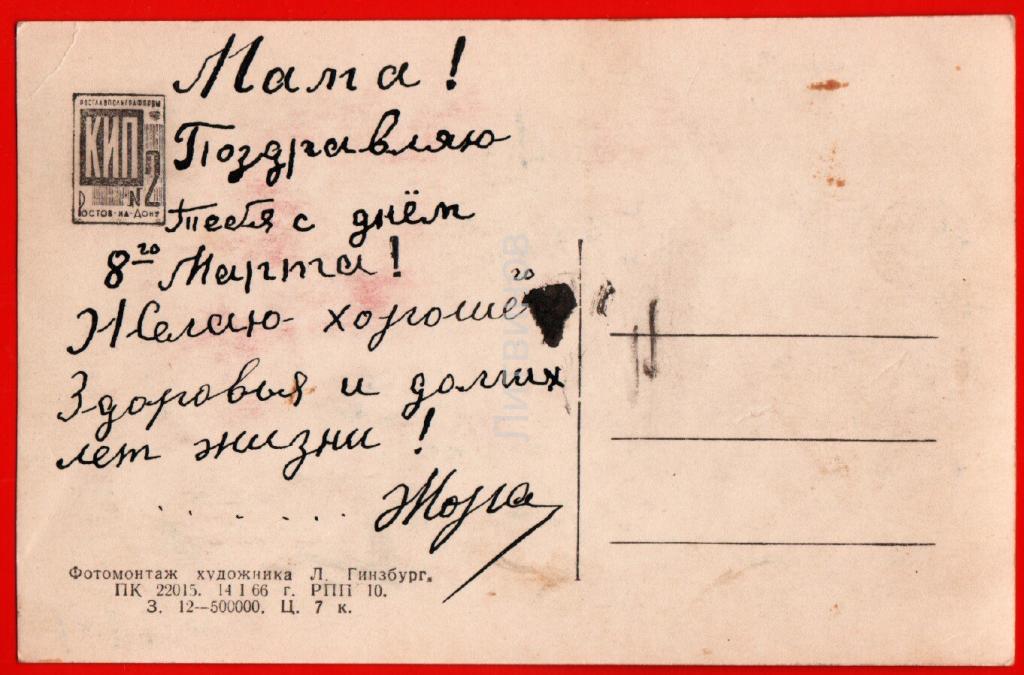 Мама!
Поздравляю
тебя с днём
8го Марта!
Желаю хорошего
Здоровья и долгих
лет жизни!
. . . . . . Жора
РОСГЛАВПОЛИГРАФПРОМ
КИП
№2
РОСТОВ-НА-ДОНУ
Литвинов
Фотомонтаж художника Л. Гинзбург.
ПК 22015. 14 I 66 г. РПП 10.
З. 12—500000. Ц. 7 к.